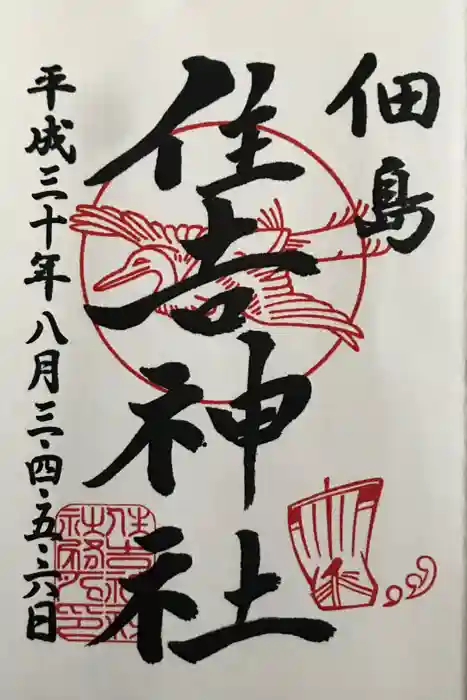 佃島
住吉神社
平成三十年八月三・四・五・六日